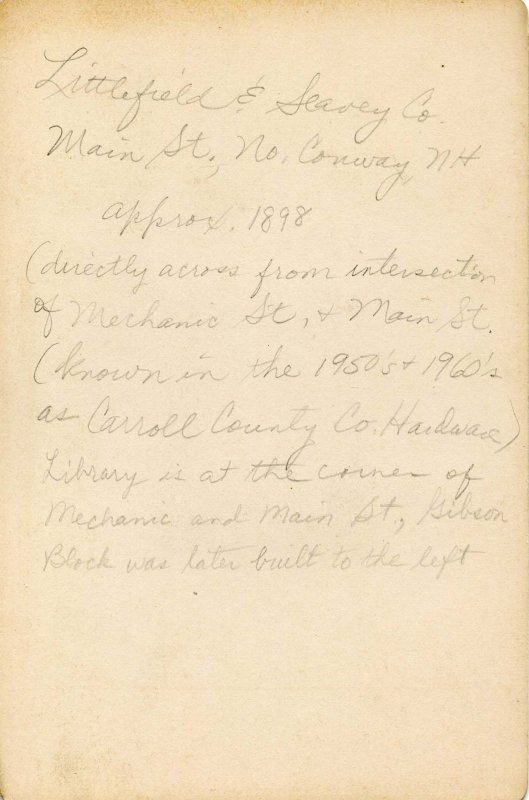 Littlefield & Seavey Co.
Main St., No. Conway, NH
approx. 1898
(directly across from intersection
of Mechanic St, + Main St.
(known in the 1950's + 1960's
as Carroll County Co. Hardware)
Library is at the corner of
Mechanic and Main St., Gibson
Block was later built to the left